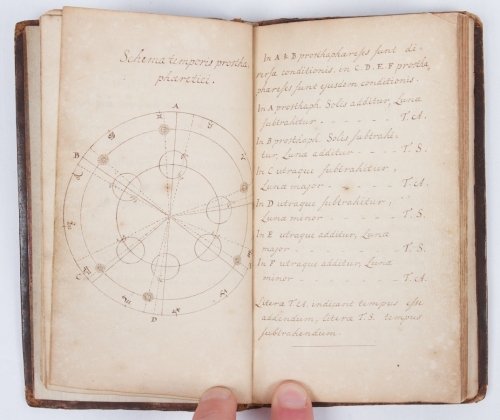 Schema temporis prostha-
pharetici.
A
B
C
D
E
In A & B prosthaphareses sunt di-
versæ conditionis, in C. D. E. F prostha-
phareses sunt ejusdem conditionis.
In A prosthaph. Solis additur, Lunæ
subtrahitur - - - - - T. A.
In B prosthaph. Solis subtrahi-
tur, Lunæ additur - - - - T. S.
In C utraque subtrahitur,
Lunæ major - - - - - T. A.
In D utraque subtrahitur,
Lunæ minor - - - - - T. S.
In E utraque additur, Lunæ
major - - - - - T. S.
In F utraque additur, Lunæ
minor - - - - - T. A.
Literæ T. A. indicant tempus esse
addendum, literæ T. S. tempus
subtrahendum.